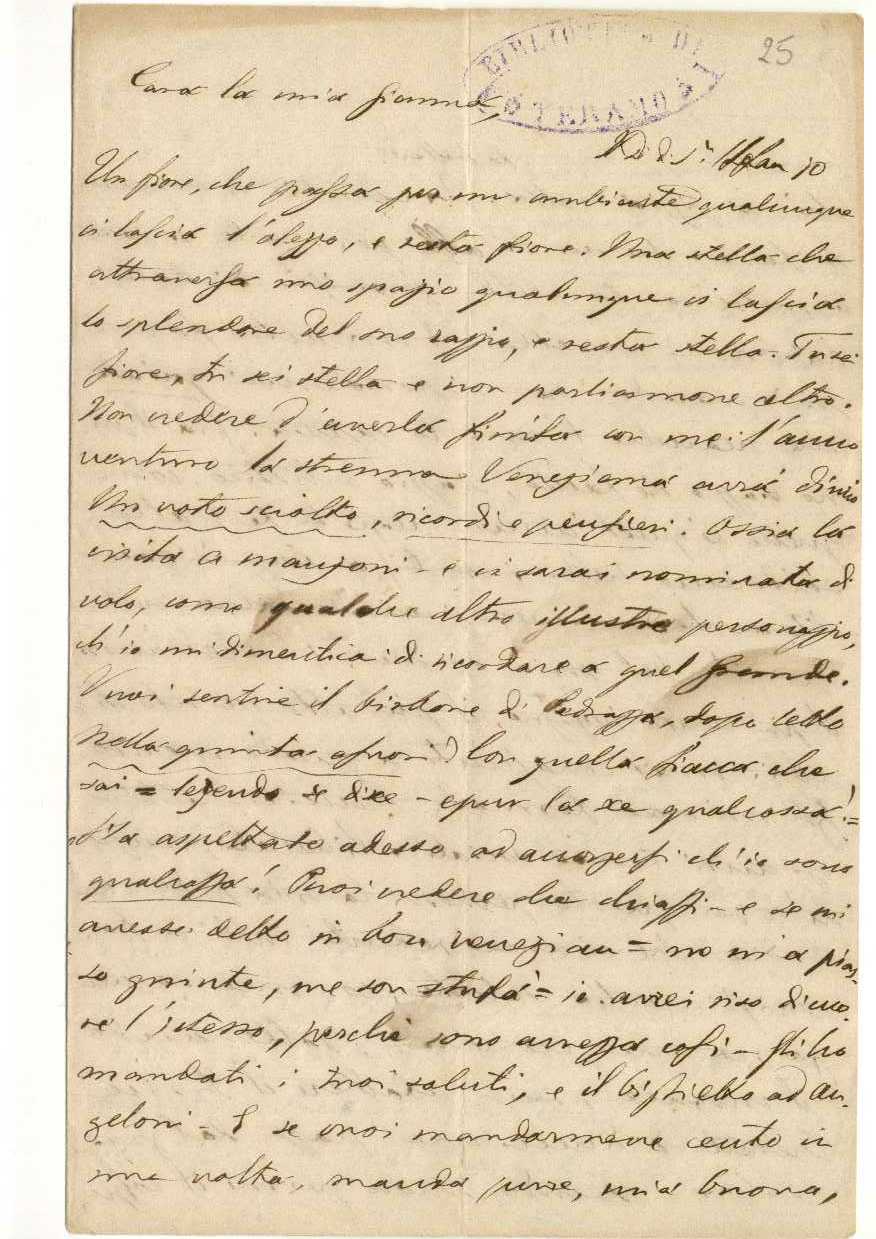 25
BIBLIOTECA DI
TERAMO
Cara la mia Gianna,
Dì di S.n Stefan 70
Un fiore, che passa per un ambiente qualunque
ci lascia l'olezzo, e resta fiore. Una stella che
attraversa uno spazio qualunque ci lascia
lo splendore del suo raggio, e resta stella. Tu sei
fiore, tu sei stella e non parliamone altro.
Non credere d'averla finita con me: l'anno
venturo la strenna Veneziana avrà di mio
Un voto sciolto, ricordi e pensieri. Ossia la
visita a Manzoni - e ci sarai nominata di
volo, come qualche altro illustre personaggio,
ch'io mi dimentica di ricordare a quel Grande.
Vuoi sentire il birbone di Pedrazza, dopo letto
Nella quinta a fuori? Con quella fiacca che
sai = legendo se dise - epur la xe qualcossa! =
Ha aspettato adesso ad accorgersi ch'io sono
qualcossa! Puoi credere che chiassi - e se mi
avesse detto in bon venezian = no mi a pias-
so gninte, me son stufà = io avrei riso di cuo-
re l'istesso, perchè sono avvezza così - Gli ho
mandati i tuoi saluti, e il biglietto ad An-
geloni - E se vuoi mandarmene cento in
una volta, manda pure, mia buona,